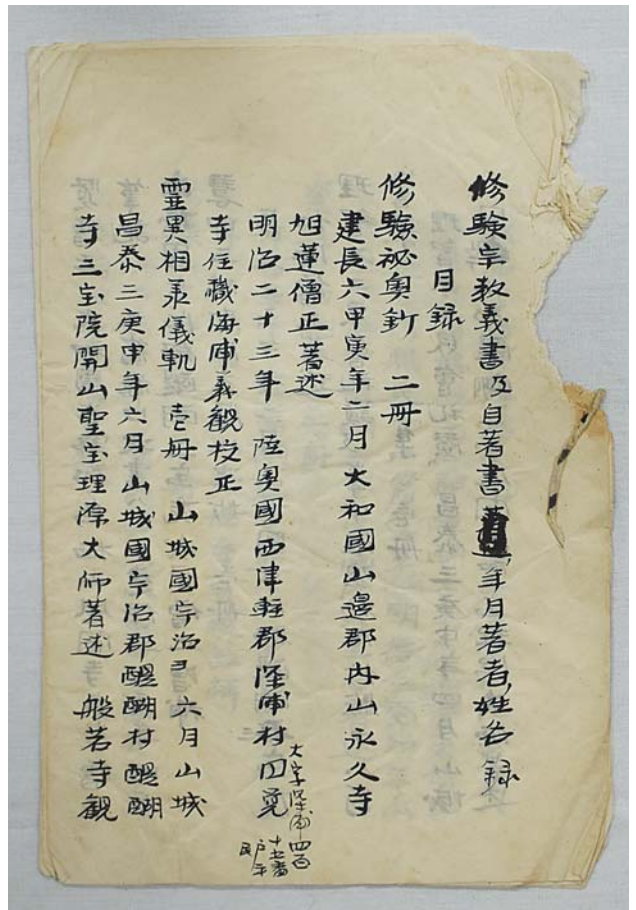 修験宗教義書及自著書年月著者姓名録
目録
修験祕奥鈔　二冊
建長六甲寅年二月大和國山邊郡内山永久寺
旭蓮僧正著述
明治二十三年　陸奥國西津軽郡深浦村円覚
大字深浦四百
十七番
戸平民
寺住職海浦義観校正
霊異相承儀軌　壱冊　山城國宇治ヨ六月山城
昌泰三庚申年六月山城國宇治郡醍醐村醍醐
寺三宝院開山聖宝理源大师著述　般若寺観